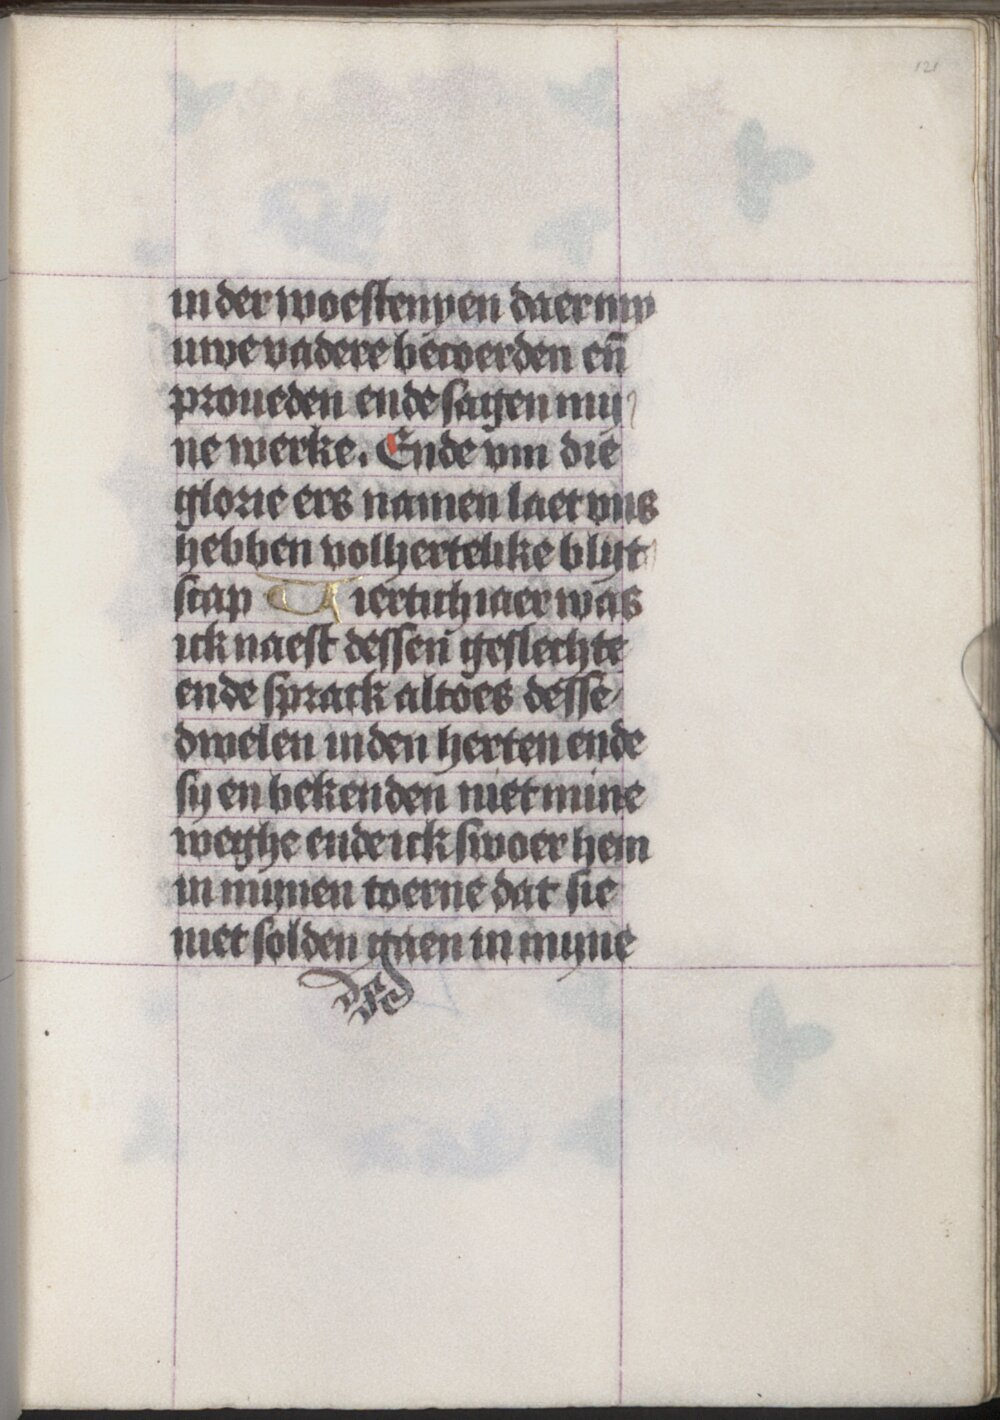 121
in der woestenyen daer my
uwe vadere becoerden eñ
proueden ende sagen mij
ne werke. Ende om die
glorie ers namen laet ons
hebben volhertelike blijt
scap Viertich iaer was
ick naest dessen geslechte
ende sprack altoes desse
dwelen in den herten ende
sy en bekenden niet mine
weghe ende ick swoer hem
in mijnen toerne dat sie
niet solden gaen in mijne